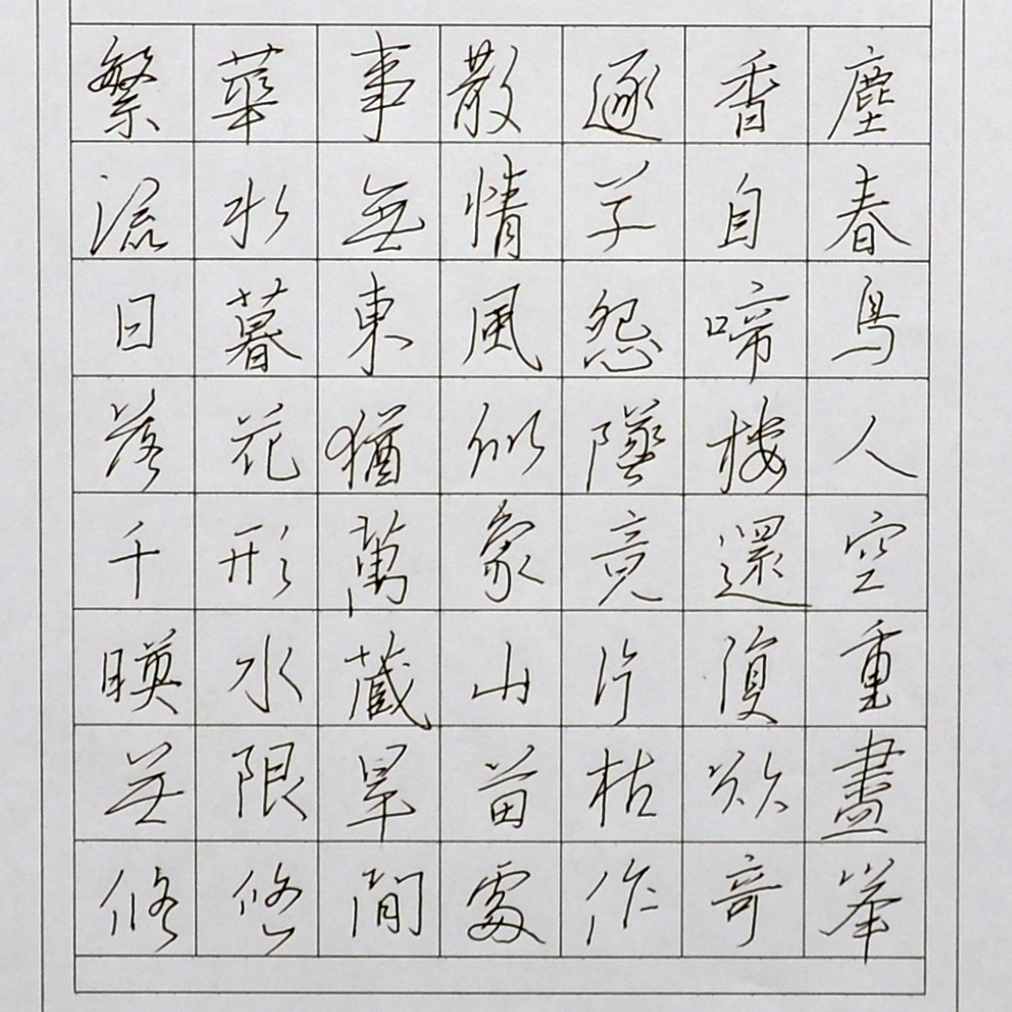 繁華事散逐香塵
流水無情草自春
日暮東風怨啼鳥
落花猶似墜樓人
千形萬象竟還空
暎水藏山片復重
無限旱苗枯欲盡
悠悠閒處作奇峯